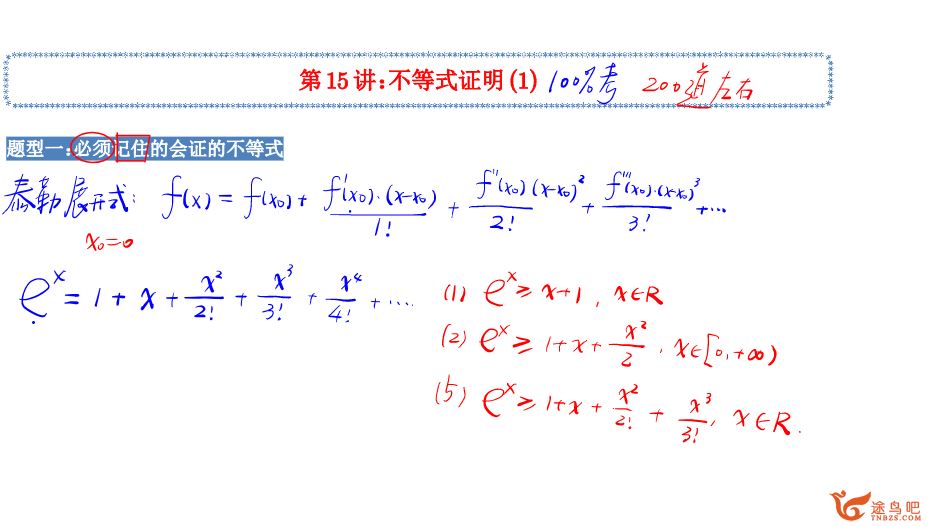 第15讲：不等式证明(1) 100%考 200道左右
题型一：必须记住的会证的不等式
泰勒展开式： f(x) = f(x₀) + f'(x₀)·(x-x₀)/1! + f''(x₀)(x-x₀)²/2! + f'''(x₀)·(x-x₀)³/3! + …
x₀=0
eˣ = 1 + x + x²/2! + x³/3! + x⁴/4! + ….
(1) eˣ ≥ x+1 , x∈R
(2) eˣ ≥ 1+x+ x²/2 , x∈[0,+∞)
(5) eˣ ≥ 1+x+ x²/2! + x³/3! , x∈R.
途鸟吧
TNBZS.COM